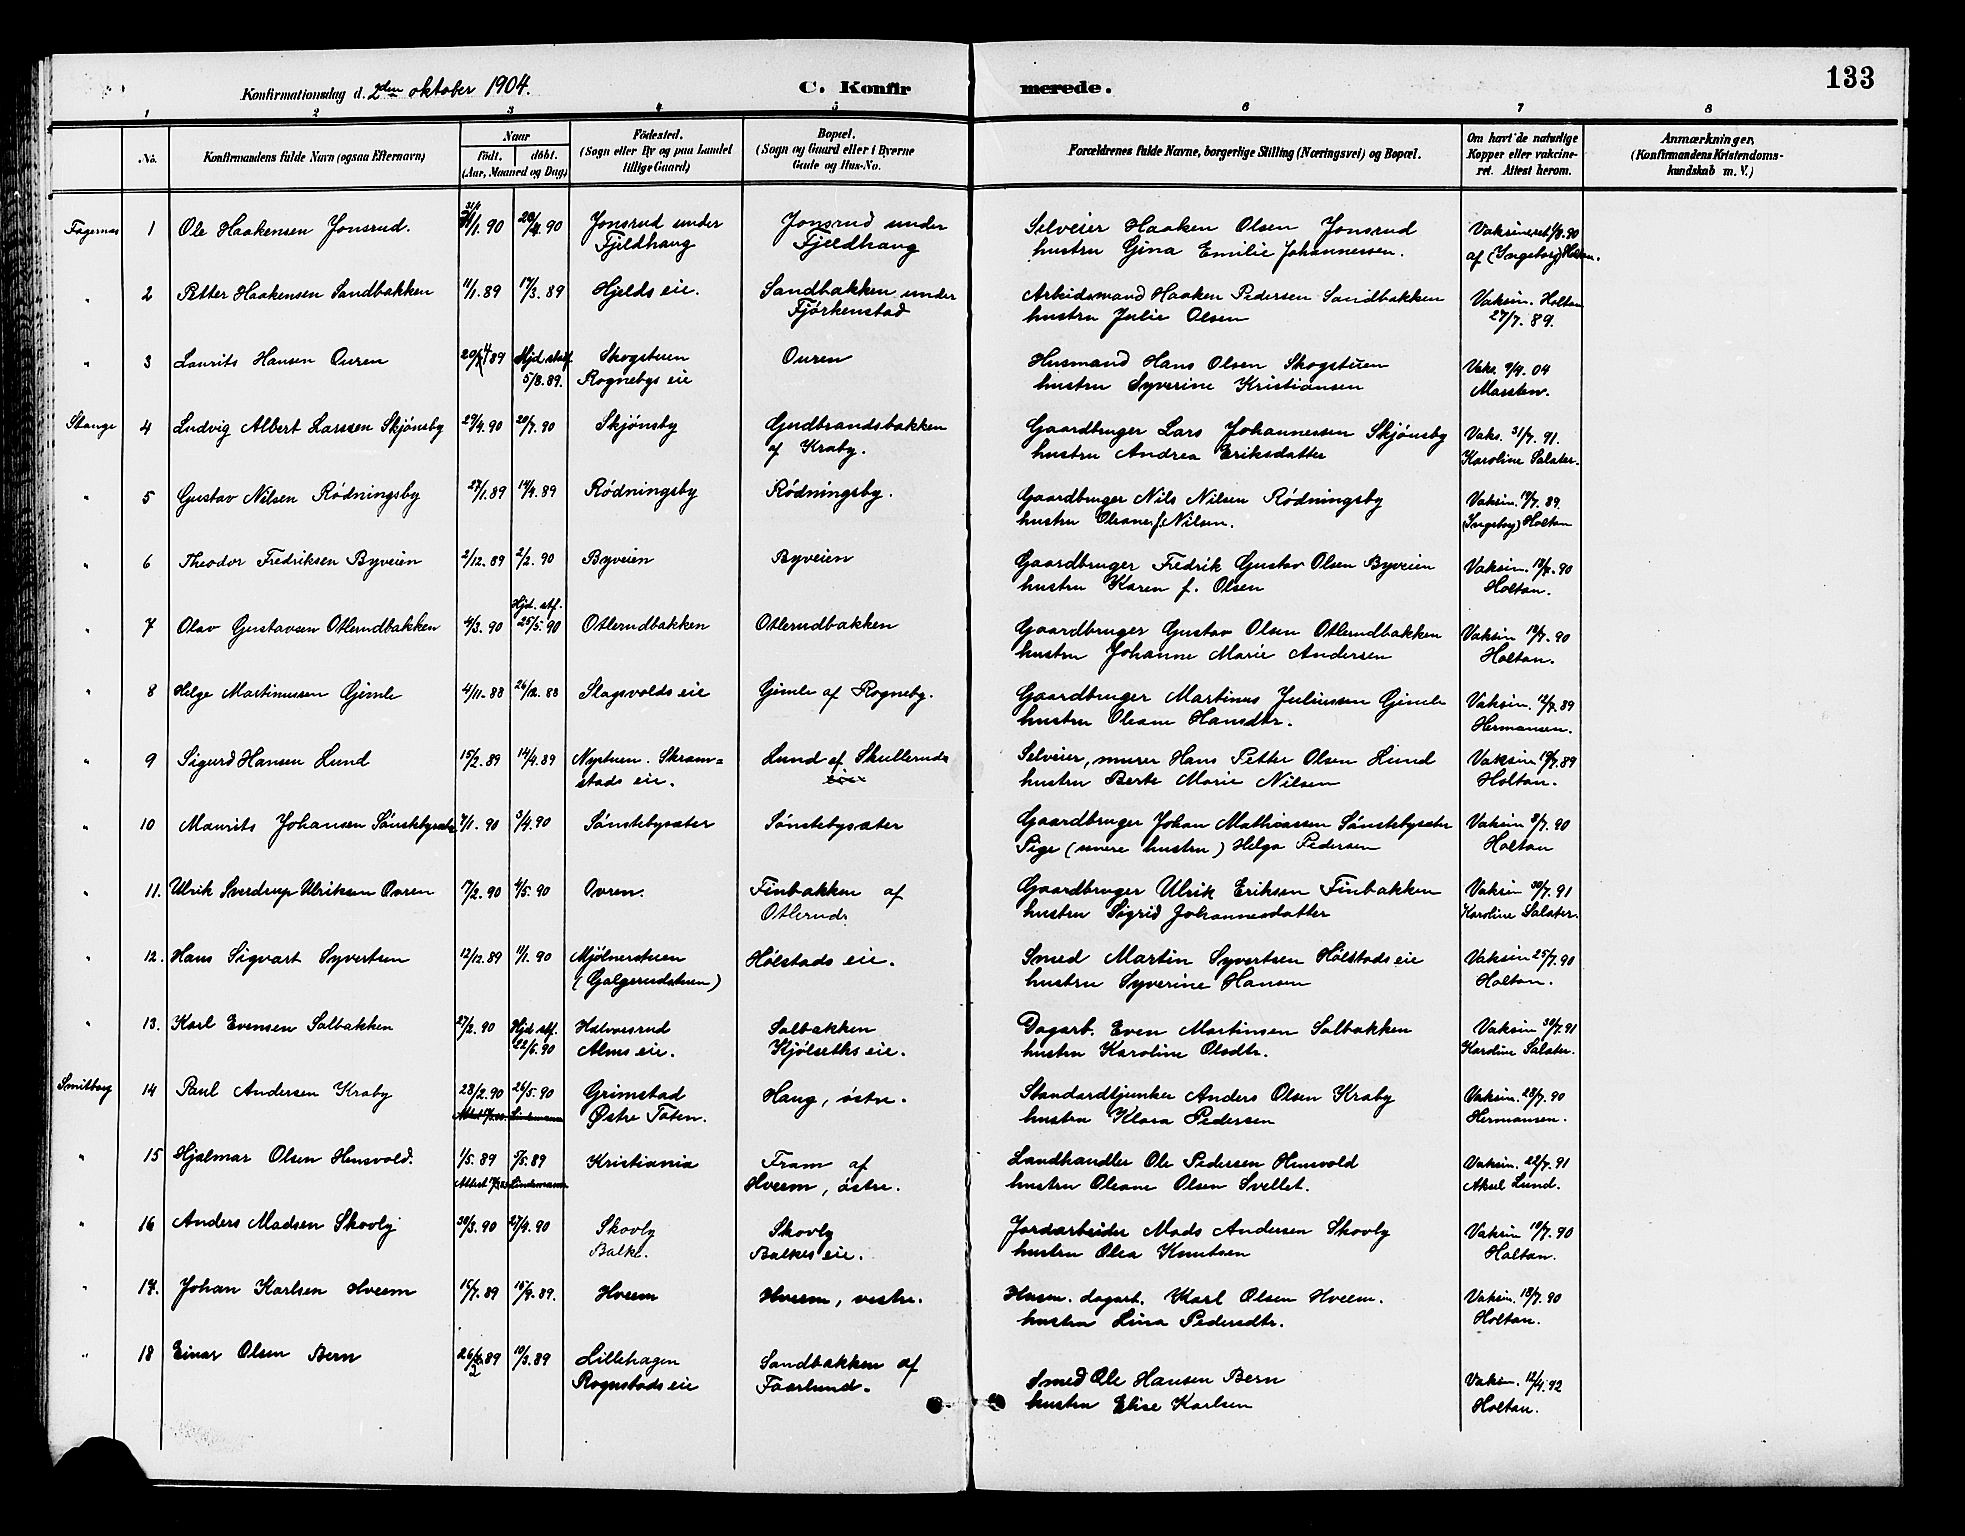 133
Konfirmationsdag d. 2den oktober 1904.
C. Konfirmerede.
1 2 3 4 5 6 7 8
No.
Konfirmandens fulde Navn (ogsaa Efternavn)
Naar
födt. döbt.
(Aar, Maaned og Dag)
Födested.
(Sogn eller By og paa Landet
tillige Gaard)
Bopæl.
(Sogn og Gaard eller i Byerne
Gade og Hus-No.
Forældrenes fulde Navne, borgerlige Stilling (Næringsvei) og Bopæl.
Om havt de naturlige
Kopper eller vakcine-
ret. Attest herom.
Anmærkninger,
(Konfirmandens Kristendoms-
kundskab m. V.)
Fagernes 1 Ole Haakensen Jonsrud. 90 20/4 90 Jonsrud under Jonsrud under Selveier Haaken Olsen Jonsrud Vaksineret 90
Fjeldhaug Fjeldhaug hustru Gina Emilie Johannessen. af (Ingeborg) Holtan.
" 2 Petter Haakensen Sandbakken 11/1.89 17/3.89 Hjelds eie. Sandbakken under Arbeidsmand Haaken Pedersen Sandbakken Vaksin. Holtan
Fjörkenstad hustru Julie Olsen 27/7.89.
" 3 Laurits Hansen Ouren 89 Hjd. stf. Skogstuen Ouren Husmand Hans Olsen Skogstuen Vaks. 9/4.04
5/8.89. Rognebys eie hustru Syverine Kristiansen
Stange 4 Ludvig Albert Larssen Skjønsby 29/4.90 20/7.90 Skjønsby Gudbrandsbakken Gaardbruger Lars Johannessen Skjønsby Vaks. 31/7.91.
af Kraby. hustru Andrea Eriksdatter Karoline Salater.
" 5 Gustav Nilsen Rødningsby 27/1.89 14/4.89 Rødningsby Rødningsby. Gaardbruger Nils Nilsen Rødningsby Vaksin. 89.
hustru Oleane f. Nilsen. (Ingeborg) Holtan
" 6 Theodor Fredriksen Byveien 2/12.89 2/2.90 Byveien Byveien Gaardbruger Fredrik Gustav Olsen Byveien Vaksin. 90
hustru Karen f. Olsen Holtan.
Hjd. stf.
" 7 Olav Gustavsen Otlerudbakken 4/3.90 25/5.90 Otlerudbakken Otlerudbakken Gaardbruger Gustav Olsen Otlerudbakken Vaksin 90
hustru Johanne Marie Andersen Holtan.
" 8 Helge Martinussen Gimle 4/11.88 26/12.88 Slagsvolds eie Gimle af Rogneby. Gaardbruger Martinus Juliussen Gimle Vaksin. 12/7.89
hustru Oleane Hansdtr. Hermansen.
" 9 Sigurd Hansen Lund 15/2.89 14/4.89 Neptun. Skram= Lund af Skulleruds Selveier, murer Hans Petter Olsen Lund Vaksin 89
stads eie. eie. hustru Berte Marie Nilsen Holtan.
" 10 Maurits Johansen Sønstebysæter 7/1.90 3/4.90 Sønstebysæter Sønstebysæter Gaardbruger Johan Mathiassen Sønstebysæter Vaksin 8/7.90
Pige (senere hustru) Helga Pedersen Holtan
" 11. Ulrik Sverdrup Ulriksen Ovren 90 4/5.90 Ovren. Finbakken af Gaardbruger Ulrik Eriksen Finbakken Vaksin 30/7.91
Otlerud. hustru Sigrid Johannesdatter Karoline Salater.
" 12. Hans Sigvart Syvertsen 12/12.89 11/1.90 Mjölnerstuen Hölstads eie. Smed Martin Syvertsen Hölstads eie Vaksin 25/7.90
(Galgerudstuen) hustru Syverine Hansen Holtan.
" 13. Karl Evensen Solbakken 27/2.90 Hjd. stf. Halvorsrud Solbakken Dagarb. Even Martinsen Solbakken Vaksin 30/7.91
90 Alms eie. Kjölseths eie. hustru Karoline Olsdtr. Karoline Salater.
Smitborg 14 Paul Andersen Kraby 23/2.90 26/5.90 Grimstad Haug, østre. Standardtjunker Anders Olsen Kraby Vaksin. 90
Østre Toten. hustru Klara Pedersen Hermansen.
" 15 Hjalmar Olsen Hensvold. 1/5.89 89 Kristiania Fram af Landhandler Ole Pedersen Hensvold Vaksin. 22/7.91
Lindemann Hveem, östre. hustru Oleane Olsen Svellet. Aksel Lund.
" 16 Anders Madsen Skovly 30/3.90 27/4.90 Skovly Skovly Jordarbeider Mads Andersen Skovly Vaksin 90
Balke. Balkes eie. hustru Olea Knutsen Holtan.
" 17. Johan Karlsen Hveem 89 15/9.89. Hveem Hveem, vestre. Husm. dagarb. Karl Olsen Hveem. Vaksin. 18/7.90
hustru Lina Pedersdtr. Holtan.
" 18 Einar Olsen Bern 89 10/3.89 Lillehagen Sandbakken af Smed Ole Hansen Bern Vaksin. 92
Rognstads eie Faarlund. hustru Elise Karlsen Holtan.